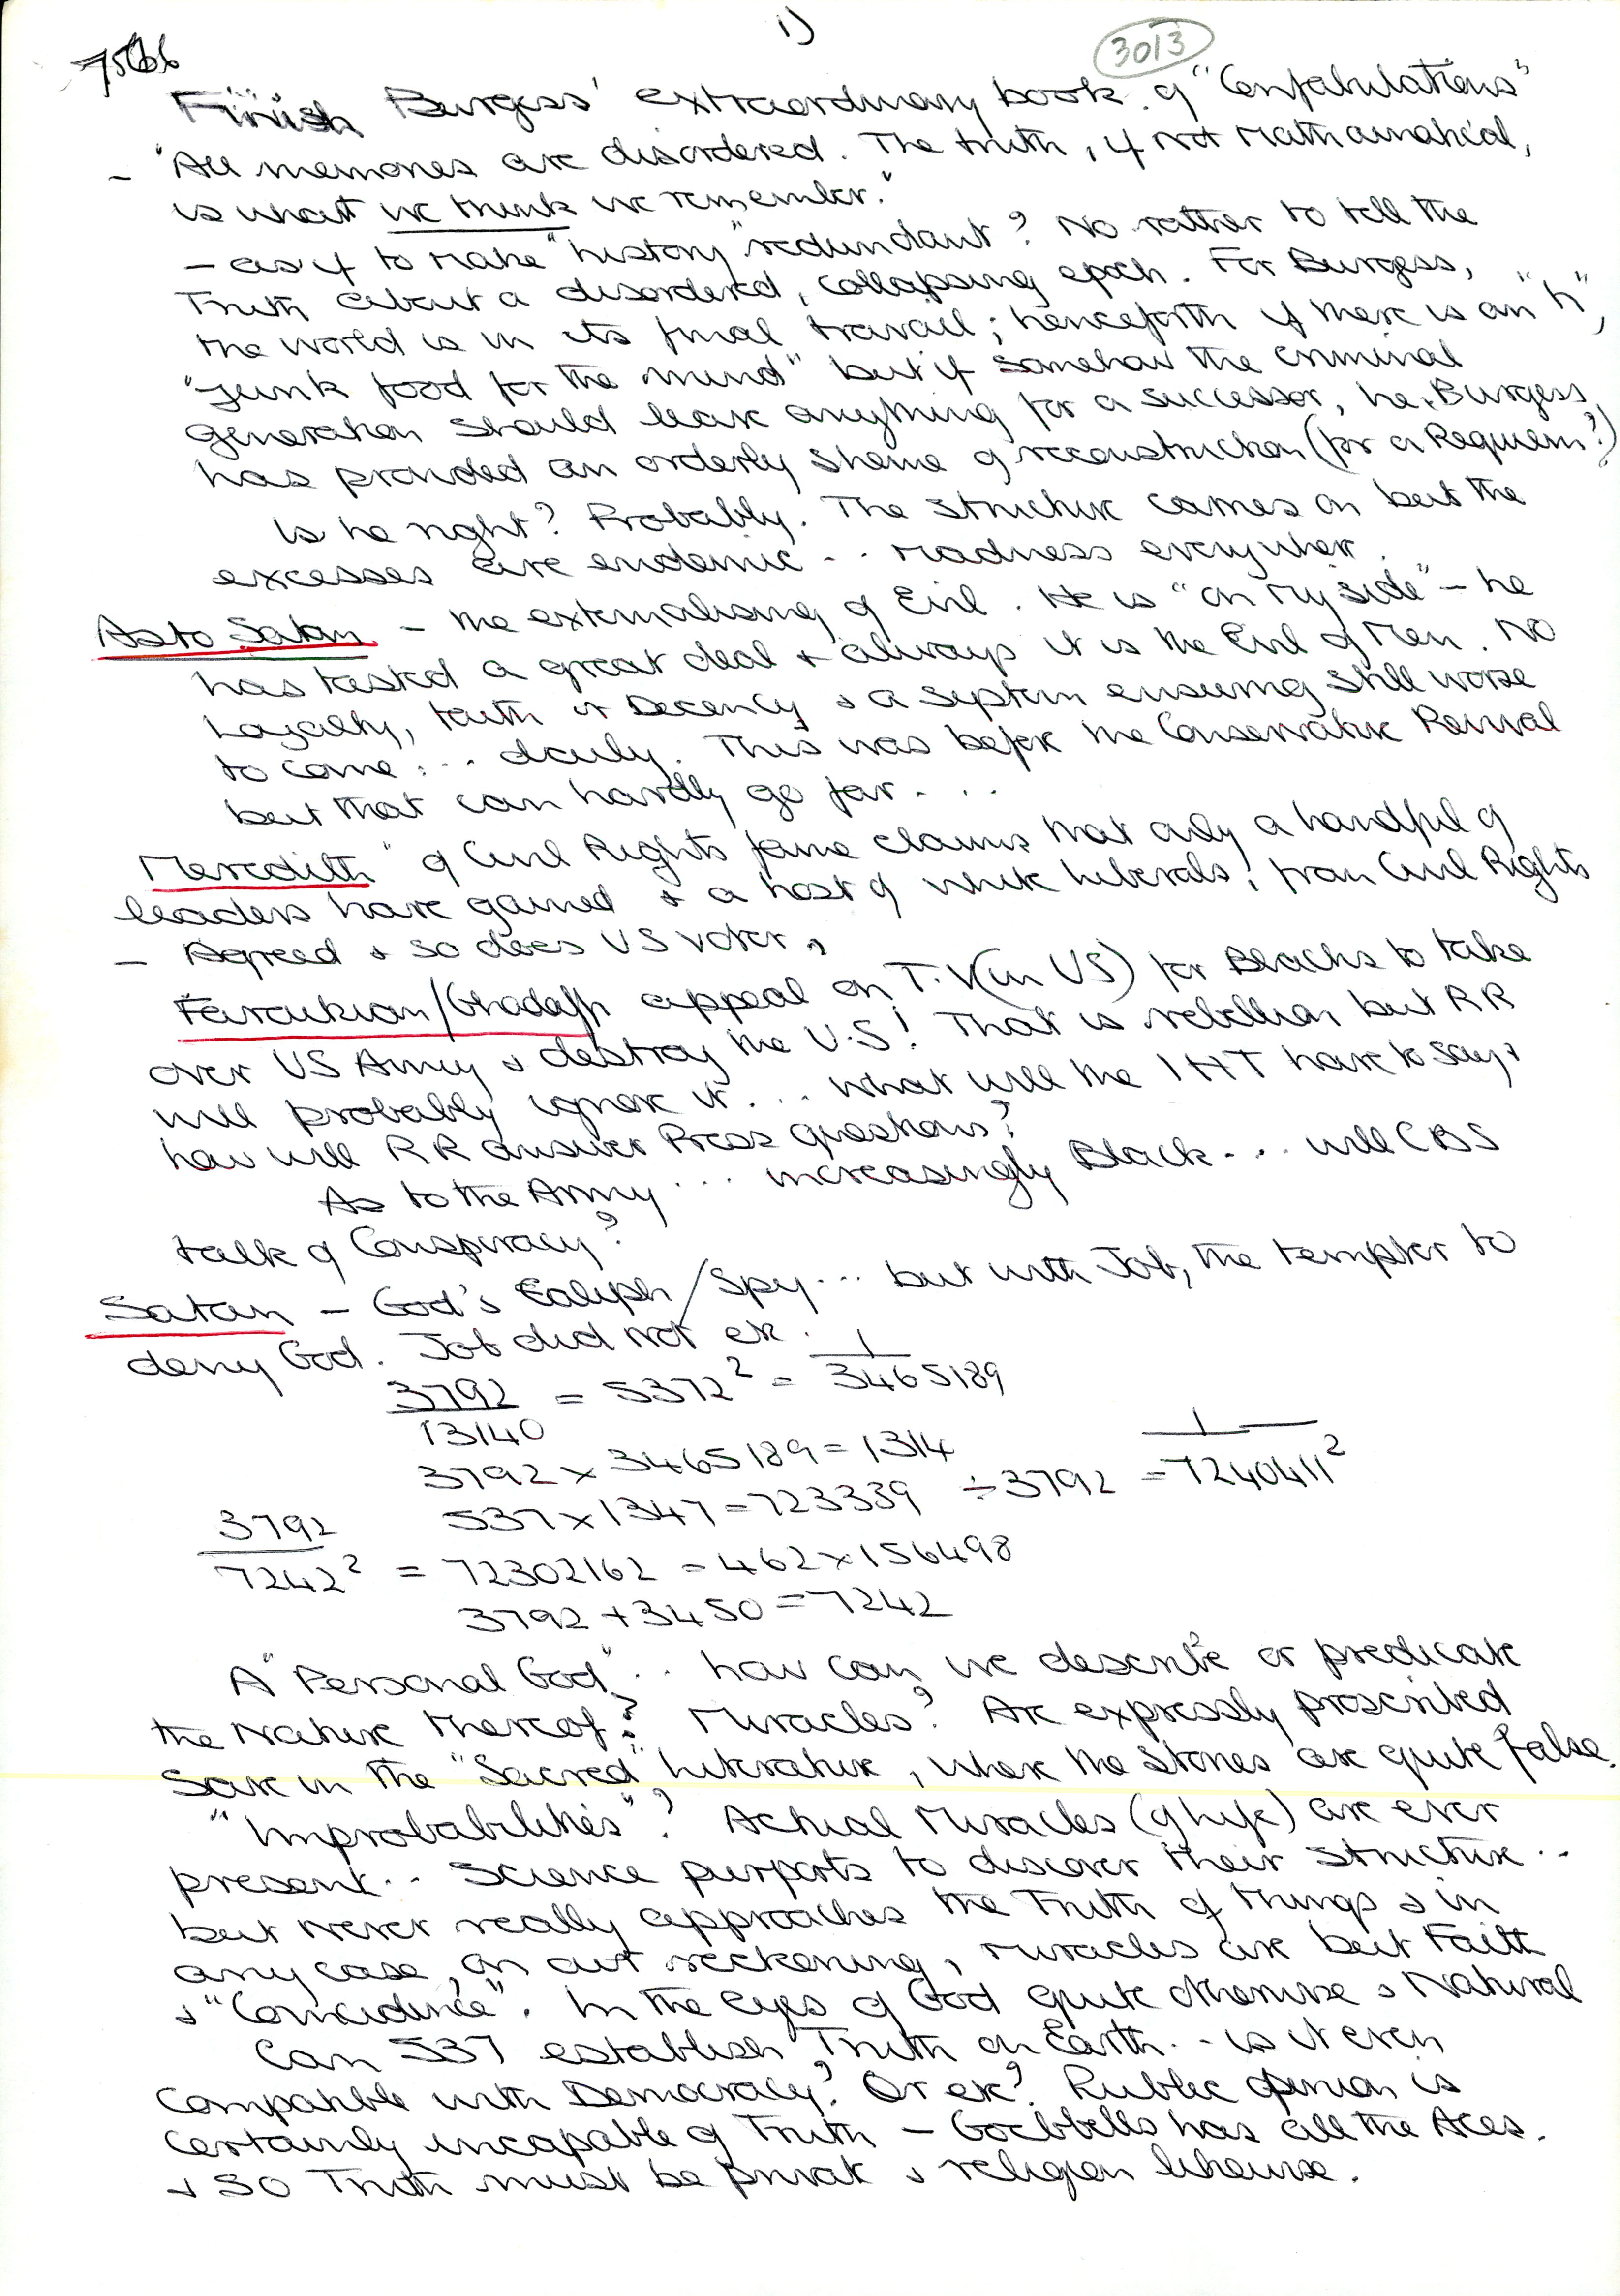 1)
3013
7566
Finish Burgess' extraordinary book of "Confabulations"
- "All memories are disordered. The truth, if not Mathamatical,
is what we think we remember."
- as if to make "history" redundant? No rather to tell the
Truth about a disordered, collapsing epoch. For Burgess,
the world is in its final travail; henceforth if there is an "h",
"junk food for the mind" but if somehow the criminal
generation should leave anything for a successor, he, Burgess,
has provided an orderly sheme of reconstruction (for a Requiem?)
Is he right? Probably. The structure carries on but the
excesses are endemic .. Madness everywhere.
As to Satan - the externalising of Evil. He is "on my side" - he
has tested a great deal & always it is the Evil of Men. No
Loyalty, faith or Decency & a system ensuring still worse
to come ... daily. This was before the Conservative Revival
but that can hardly go far ...
Meredith of Civil Rights fame claims that only a handful of
leaders have gained & a host of white liberals, from Civil Rights
- Agreed & so does US voter.
Farakian/Ghadaffi appeal on T.V (in US) for Blacks to take
over US Army & destroy the U.S! That is rebellion but RR
will probably ignore it ... What will the IHT have to say &
how will RR answer Press questions?
As to the Army ... increasingly Black ... will CBS
talk of Conspiracy?
Satan - God's Ealiph / Spy ... but with Job, the tempter to
deny God. Job did not etc.
3792/13140 = 5372² = 1/3465189
3792 × 3465189 = 1314
537 × 1347 = 723339 ÷ 3792 = 1/7240411²
3792/7242² = 72302162 = 462 × 156498
3792 + 3450 = 7242
A "Personal God" .. how can we describe or predicate
the Nature thereof? Miracles? Are expressly proscribed
Save in the "Sacred" Literature, where the Stories are quite false.
"Improbabilities"? Actual Miracles (of life) are ever
present .. Science purports to discover their structure ..
but never really approaches the Truth of things & in
any case, on out reckoning, miracles are but Faith
& "Coincidence". In the eyes of God quite otherwise & Natural
Can 537 establish Truth on Earth .. is it even
Compatible with Democracy? Or etc? Public opinion is
certainly incapable of Truth - Goebbells has all the Aces.
& so Truth must be private & religion likewise.